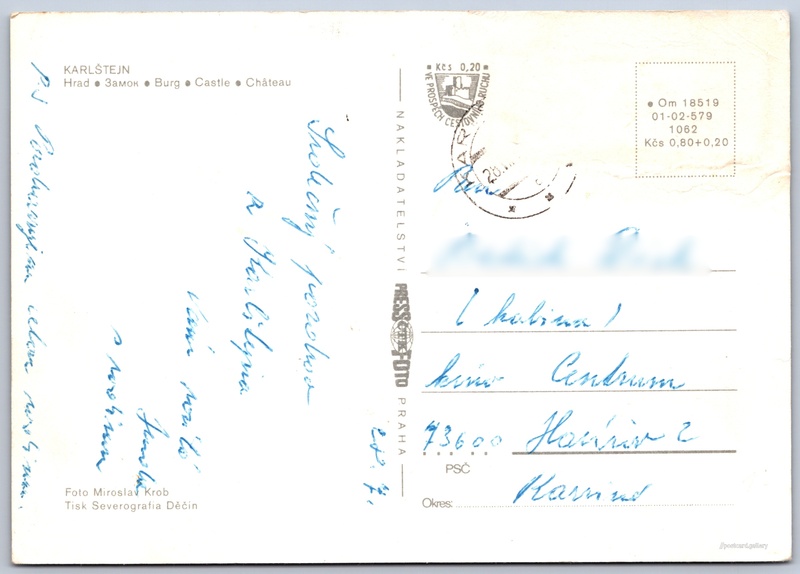 KARLŠTEJN
Hrad ● Замок ● Burg ● Castle ● Château
Srdečný pozdrav
z Karlštejna
Vám posílá
s rodinou
27. 7.
celou rodinu.
Foto Miroslav Krob
Tisk Severografia Děčín
NAKLADATELSTVÍ PRESSFOTO PRAHA
Kčs 0,20
VE PROSPĚCH CESTOVNÍHO RUCHU
KAR
28. VII
● Om 18519
01-02-579
1062
Kčs 0,80+0,20
Pan
( kabina )
kino Centrum
73600 Havířov 2
PSČ
Karviná
Okres:
//postcard.gallery